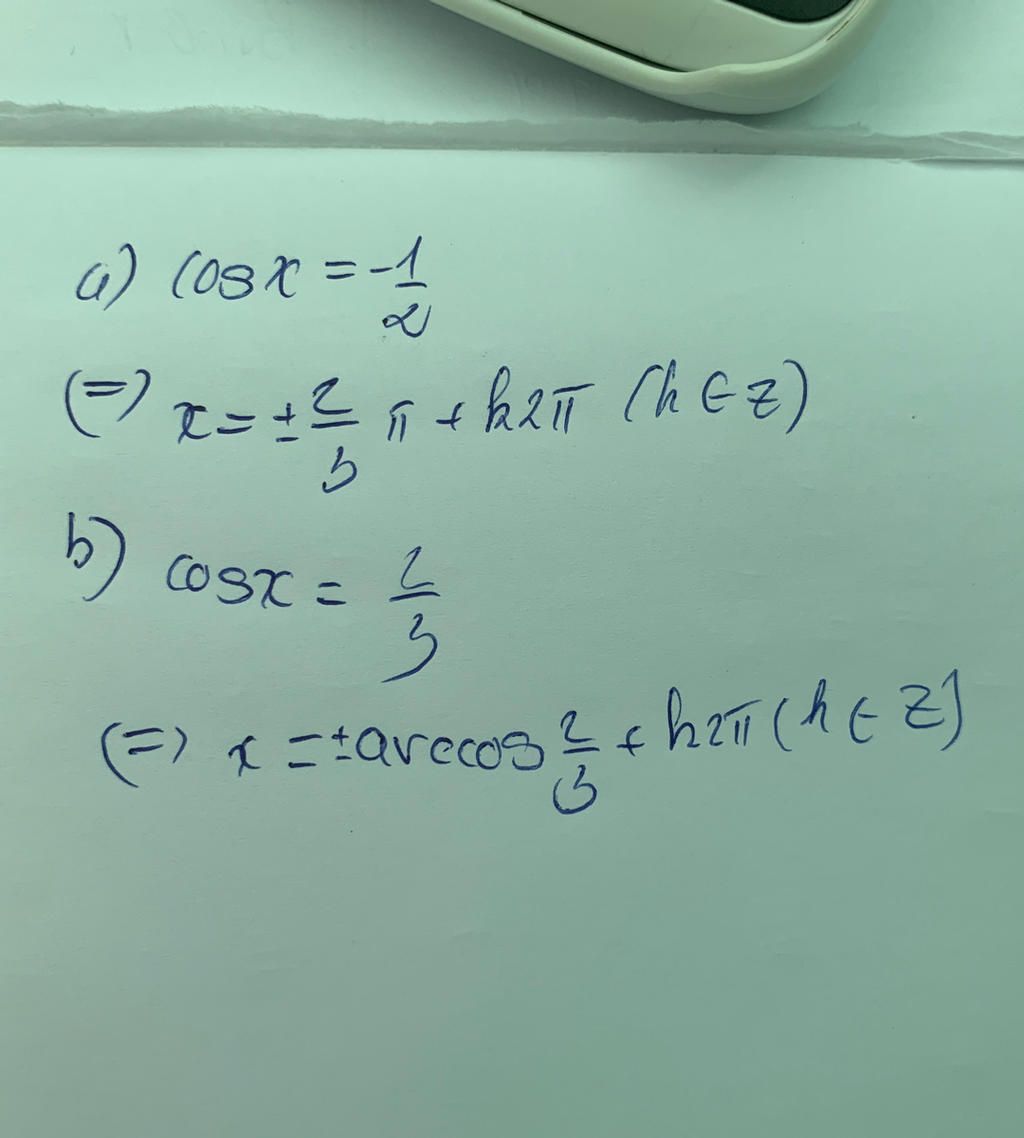 a) cosx = -1/2
(=) x = ± 2/3 π + k2π (k ∈ Z)
b) cosx = 2/3
(=) x = ± arccos 2/3 + k2π (k ∈ Z)